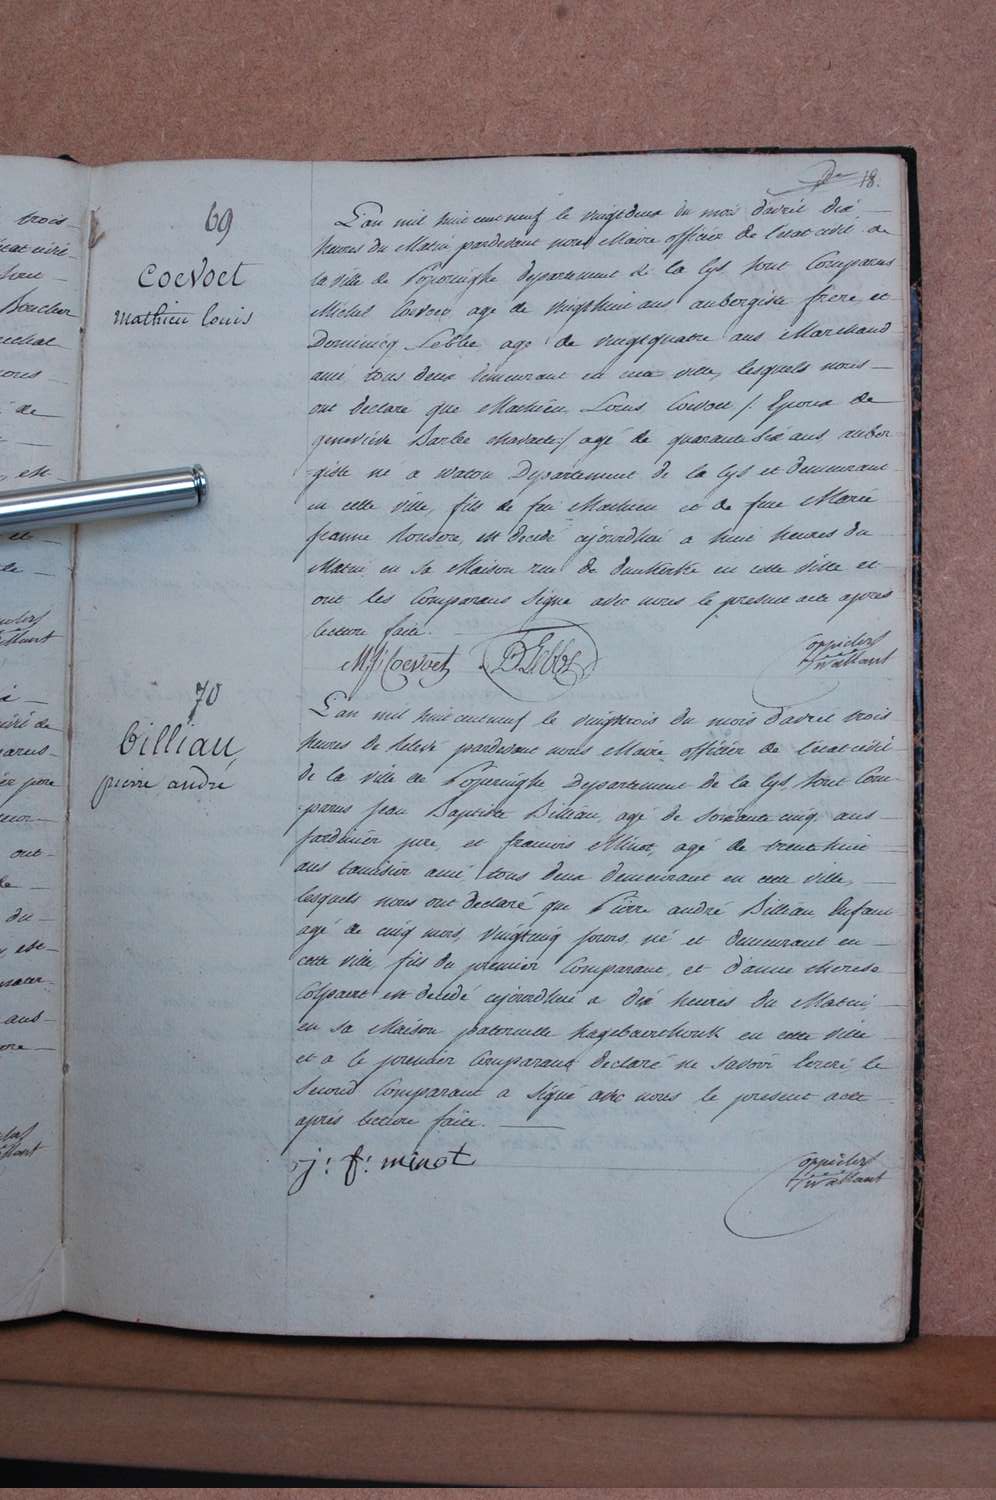 18.
69
Coevoet
Mathieu Louis
L'an mil huit cent neuf le vingtdeux du mois d'avril dix
heures du Matin pardevant nous Maire officier de l'etat civil de
la ville de Poperinghe departement de la Lys sont Comparus
Michel Coevoet age de vingthuit ans aubergiste frere et
Dominicq Lebbe, age de vingtquatre ans Marchand
ami tous deux demeurant en cette ville, lesquels nous
ont declaré que Mathieu Louis Coevoet /: Epoux de
genevieve Barbe :/ agé de quarante six ans auber
giste né a watou Departement de la lys et demeurant
en cette ville, fils de feu Mathieu et de feue Marie
jeanne, est decedé cejourdhui a huit heures du
Matin en sa Maison rue de dunkerke en cette ville et
ont les Comparans signé avec nous le present acte apres
lecture faite.
M. Coevoet D Lebbe
70
Billiau,
pierre andré
L'an mil huit cent neuf le vingttrois du mois d'avril trois
heures de relevé pardevant nous Maire officier de l'etat civil
de la ville de Poperinghe Departement de la Lys, sont Com-
parus Jean Baptiste Billiau, agé de soixante cinq ans
Jardinier pere, et francois Minot, agé de trent huit
ans tamisier ami tous deux demeurant en cette ville,
lesquels nous ont declaré que Pierre andré Billiau Enfant
agé de cinq mois, vingtcinq jours, né et demeurant en
cette ville, fils du premier Comparant, et d'anne therese
Colpaert est decedé cejourdhui a dix heures du Matin
en sa Maison paternelle en cette ville
et a le premier Comparant declaré ne savoir ecrire le
second Comparant a signé avec nous le present acte
aprés lecture faite.
j: f: minot